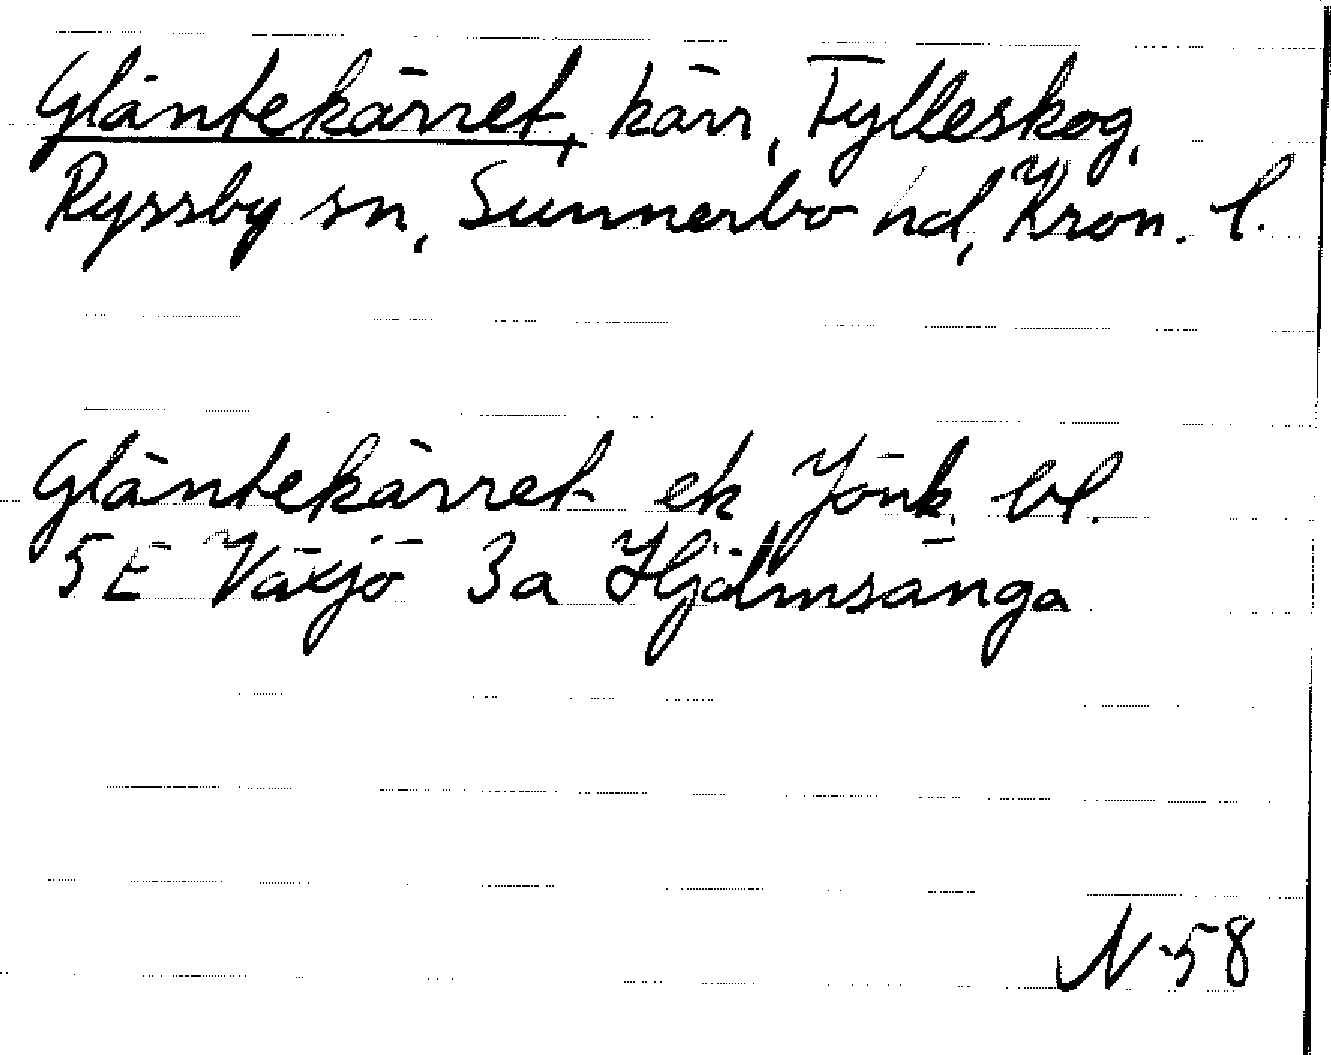 Gläntekärret, kärr, Tylleskog,
Ryssby sn, Sunnerbo hd, Kron. l.
Gläntekärret ek Jönk. bl.
5E Växjö 3a Hjälmsänga
N-58